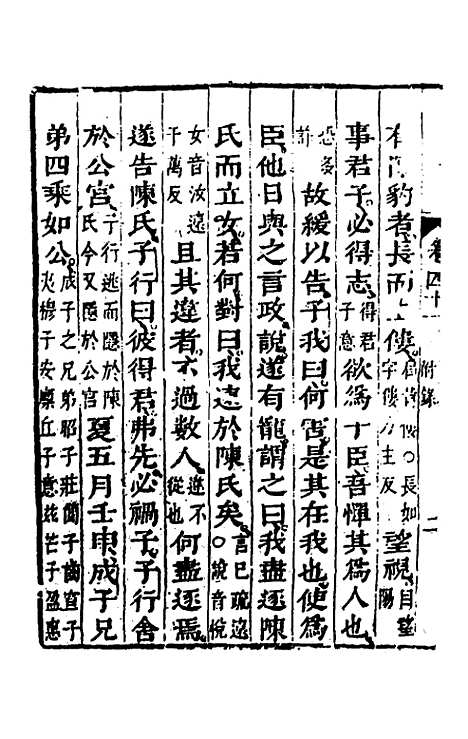 卷四十 附錄 二
豹者長而上僂肩背僂○長如字僂力主反望視目望陽
事君子必得志得君子意欲爲子臣吾憚其爲人也
恐多詐故緩以告子我曰何害是其在我也使爲
臣他日與之言政說遂有寵謂之曰我盡逐陳
氏而立女若何對曰我遠於陳氏矣言已疏遠○說音悅
女音汝遠于萬反且其違者不過數人違不從也何盡逐焉
遂告陳氏子行曰彼得君弗先必禍子子行舍
於公宮子行逃而隱於陳氏今又隱於公宮夏五月壬申成子兄
弟四乘如公成子之兄弟昭子莊簡子齒宣子夷穆子安廩丘子意茲芒子盈惠